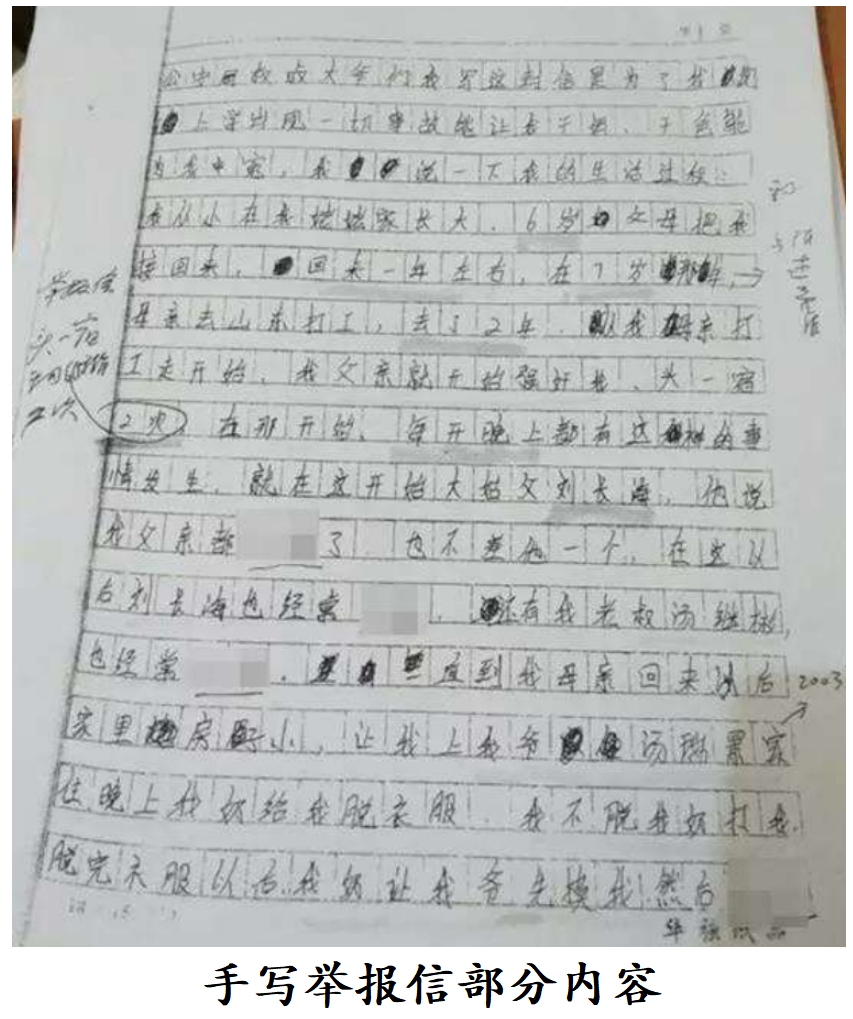 公安局叔叔大爷们我写这封信是为了我
上学出现一切事故能让我干妈、干爸能
为我申冤,我说一下我的生活过程:
我从小在我姑姑家长大,6岁父母把我
接回来,回来一年左右,在7岁那年,
母亲去山东打工,去了2年.从我母亲打
工走开始,我父亲就开始强奸我、头一宿
2次,在那开始,每天晚上都有这样的事
情发生,就在这开始大姑父刘长海,他说
我父亲都 了,也不差他一个,在这以
后刘长海也经常 ,还有我老叔汤继彬,
也经常 .直到我母亲回来以后
家里房子小,让我上我爷汤瑞景家
住晚上我奶给我脱衣服.我不脱我奶打我.
脱完衣服以后我奶让我爷先摸我然后
举报信
头一宿
二次
2003
手写举报信部分内容